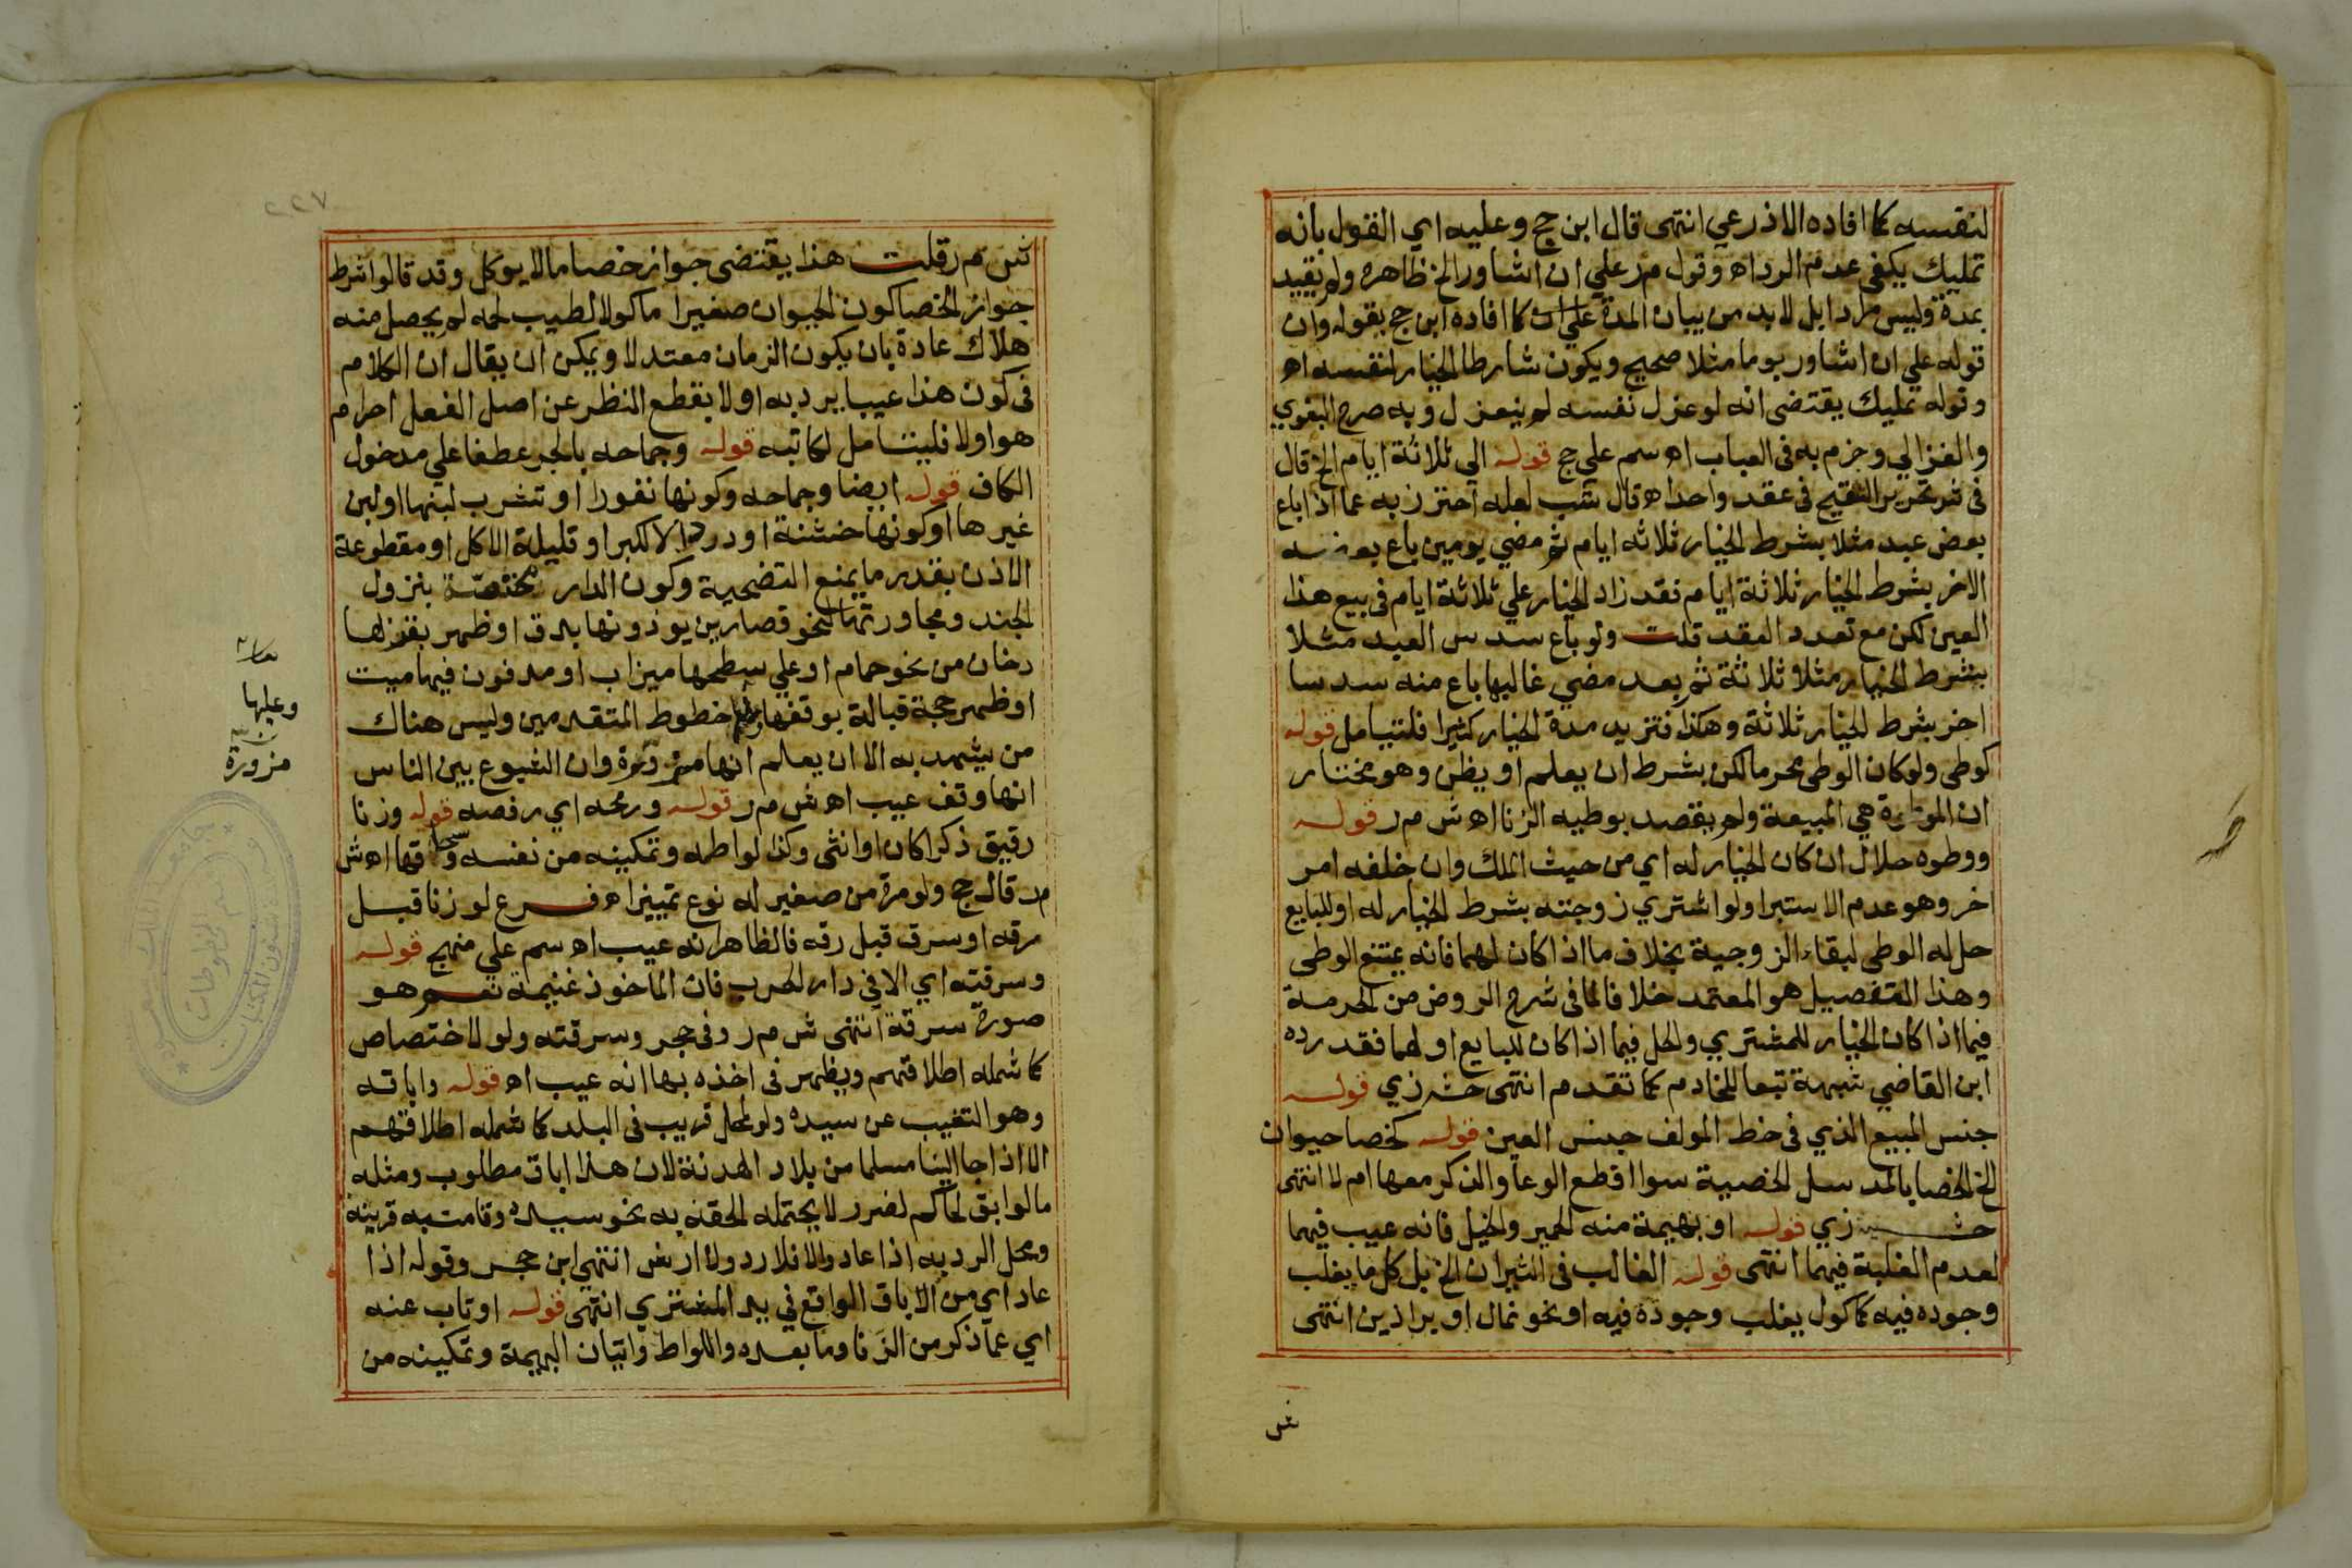 لنفسه كما افاده الاذرعي انتهى قال ابن حج وعليه اي القول بأنه
تمليك يكفي عدم الرد اه وقول م ر علي ان اشاور الخ ظاهره ولو لم يقيد
بمدة وليس مرادا بل لا بد من بيان المدة كما افاده ابن حج بقوله وان
قوله علي ان اشاور يوما مثلا صحيح ويكون شارطا الخيار لنفسه اه
وقوله تمليك يقتضي انه لو عزل نفسه لم ينعزل وبه صرح البغوي
والغزالي وجزم به في العباب اه سم علي حج قوله الي ثلاثة ايام الخ قال
في شرح تحرير التنقيح في عقد واحد اه قال شب لعله احترز به عما اذا باع
بعض عبد مثلا بشرط الخيار ثلاثه ايام ثم مضي يومين باع بعضه
الاخر بشرط الخيار ثلاثة ايام فقد زاد الخيار علي ثلاثة ايام في بيع هذا
العين لكن مع تعدد العقد قلت ولو باع سدس العبد مثلا
بشرط الخيار مثلا ثلاثة ثم بعد مضي غالبها باع منه سدسا
اخر بشرط الخيار ثلاثة وهكذا فتزيد مدة الخيار كثيرا فليتامل قوله
كوطي ولو كان الوطي محرما لكن بشرط ان يعلم او يظن وهو مختار
ان الموطوءة هي المبيعة ولم يقصد بوطيه الزنا اه ش م ر قوله
ووطوه حلال ان كان الخيار له اي من حيث الملك وان خلفه امر
اخر وهو عدم الاستبرا ولو اشتري زوجته بشرط الخيار له او للبايع
حل له الوطي لبقاء الزوجية بخلاف ما اذا كان لهما فانه يمتنع الوطي
وهذا التفصيل هو المعتمد خلافا لما في شرح الروض من الحرمة
فيما اذا كان الخيار للمشتري والحل فيما اذا كان للبايع او لهما فقد رده
ابن القاضي شهبة تبعا للخادم كما تقدم انتهى حش زي قوله
جنس المبيع الذي في خط المولف جنس العين قوله كخصا حيوان
الخ الخصا بالمد سل الخصية سوا اقطع الوعا والذكر معها ام لا انتهى
حش زي قوله او بهيمة منه الحمير والخيل فانه عيب فيهما
لعدم الغلبة فيهما انتهى قوله الغالب في الثيران الخ بل كل ما يغلب
وجوده فيه كما كول يغلب وجوده فيه او نحو بغال او براذين انتهى
ش
٢٢٧
ش م ر قلت هذا يقتضي جواز خصا ما لا يوكل وقد قالوا شرط
جواز الخصا كون الحيوان صغيرا ماكولا لطيب لحمه لم يحصل منه
هلاك عادة بان يكون الزمان معتدلا ويمكن ان يقال ان الكلام
في كون هذا عيبا يرد به او لا بقطع النظر عن اصل الفعل احرام
هو اولا فليتامل لكاتبه قوله وجماحه بالجر عطفا علي مدخول
الكاف قوله ايضا وجماحه وكونها نفورا او تشرب لبنها او لبن
غيرها او كونها خشنة او دردا لا لكبر او قليلة الاكل او مقطوعة
الاذن بقدر ما يمنع التضحية وكون الدار مختصة بنزول
الجند ومجاورتها لنحو قصارين يوذونها بدق او ظهر بقربها
دخان من نحو حمام او علي سطحها ميزاب او مدفون فيها ميت
او ظهر حجة قبالة بوقفها خطوط المتقدمين وليس هناك
من يشهد به الا ان يعلم انها مزورة وان الشيوع بين الناس
انها وقف عيب اه ش م ر قوله ورمحه اي رفصه قوله وزنا
رقيق ذكرا كان او انثى وكذا لواطه وتمكينه من نفسه وسحاقها اه ش
م ر قال حج ولو مرة من صغير له نوع تمييز اه فرع لو زنا قبل
رقه او سرق قبل رقه فالظاهر انه عيب اه سم علي منهج قوله
وسرقته اي الا في دار الحرب فان الماخوذ غنيمة نعم هو
صورة سرقة انتهى ش م ر وفي حجر وسرقته ولو لاختصاص
كما شمله اطلاقهم ويظهر في اخذه بها انه عيب اه قوله واباقه
وهو التغيب عن سيده ولو لمحل قريب في البلد كما شمله اطلاقهم
الا اذا جا الينا مسلما من بلاد الهدنة لان هذا اباق مطلوب ومثله
ما لو ابق لحاكم لضرر لا يحتمله الحقه به نحو سيده وقامت به قرينة
ومحل الرد به اذا عاد والا فلا رد ولا ارش انتهي ابن حجر وقوله اذا
عاد اي من الاباق الواقع في يد المشتري انتهى قوله او تاب عنه
اي عما ذكر من الزنا وما بعده واللواط واتيان البهيمة وتمكينه من
وعليها
مزورة